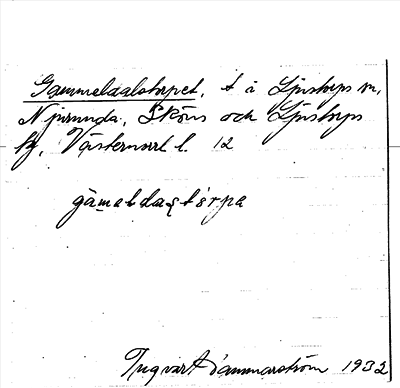 Gammeldalstorpet, t å Ljustorps m,
Njurunda, Sköns och Ljustorps
tg, Västernorrl l. 12
gàmaldaʂtórpa
Ingvar Hammarström 1932